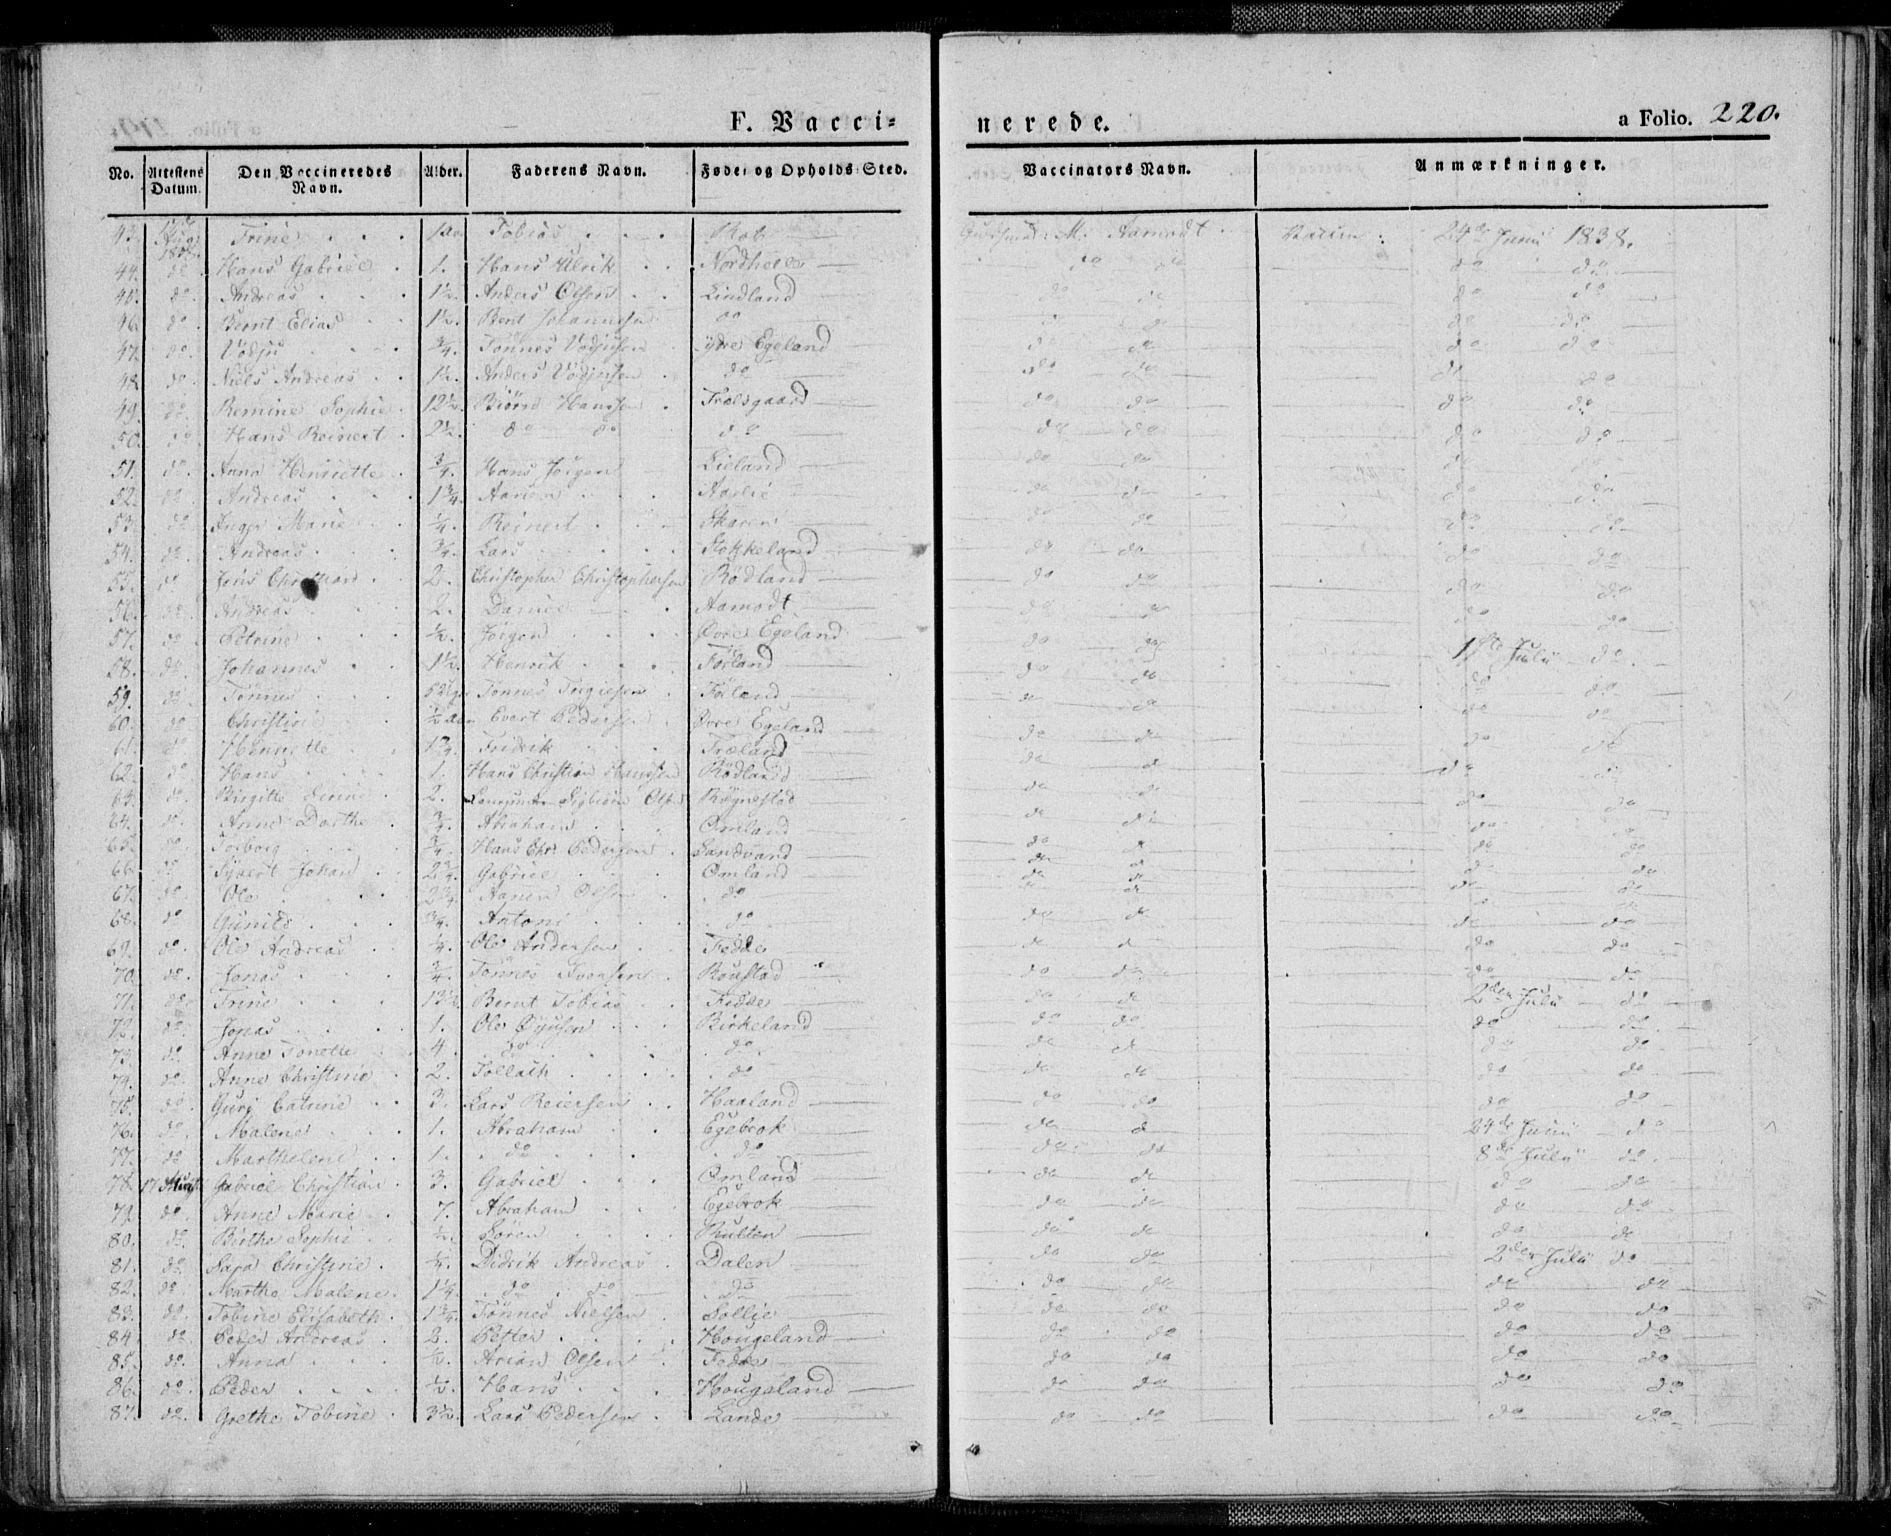 F. Vacci= nerede. a Folio. 220.
No. Attestens Datum. Den Vaccineredes Navn. Alder. Faderens Navn. Føde= og Opholds=Sted. Vaccinators Navn. Anmærkninger.
43. Aug 1838 Trine Tobias M. Aamodt 24de Junii 1838.
44. do Hans Gabriel 1. Hans Ulrik Nordhelle do do do do
45. do. Andreas 1½. Anders Olsen Lindland do do do do
46. do. Bernt Elias 1½. Bent Johannesen do do do do do
47. do. Vödju ¾. Tönnes Vödjusen ydre Egeland do do do do
48. do. Niels Andreas 1½. Anders Vödjusen do do do do do
49. do. Remine Sophie 12½. Biörn Hanssen Trælsgaard do do do do
50. do. Hans Reinert 2½. do do do do do do do
51. do. Anne Henriette ¾. Hans Jörgen Lieland do do do do
52. do. Andreas 1¾. Aanen Aaslie do do do do
53. do. Inger Marie ¼. Reinert Skaren do do do do
54. do. Andreas ¾. Lars Stokkeland do do do do
55. do Jens Christian 2. Christopher Christophersen Rödland do do do do
56. do. Andreas 2. Daniel Aamodt do do do do
57. do Petrine ½. Jörgen Øvre Egeland do do
58. do. Johannes 1½. Henrik Förland do do 1ste Julii do.
59. do. Tönnes Tönnes Tergiesen Förland do do do do
60. do Christine ½ Evert Pedersen Øvre Egeland do do do do
61. do Henriette 1¾. Fridrik Træland do do do do
62. do. Hans 1. Hans Christian Hanssen Rödland do do do
63. do. Birgitte Serine 2. Sigbiörn Olsen Røgnestad do do do do
64. do. Anne Dorthe ¾. Abraham Omland do do do do
65. do. Torborg ¾. Hans Chr. Pedersen Sandvand do do do do
66. do Syvert Johan 2¾. Gabriel Omland do do do do
67. do. Ole 2¾. Aanen Olsen do do do do do
68. do Gunild ¾. Antoni do do do do do
69. do. Ole Andreas ¼. Ole Andersen Fedde do do do do
70. do. Jonas ¾. Tönnes Iversen Roustad do do do do
71. do Trine 13½. Bernt Tobias Fedde do do 2den Julii do
72. do. Jonas 1. Ole Öyusen Birkeland do do do do.
73. do. Anne Tonette 4. do do. do do do do
74. do. Anne Christine 2. Tollach do do do do do
75. do. Guri Catrine 3. Lars Reiersen Haaland do do do do
76. do. Malene 1. Abraham Egebrok do do 24de Junii do
77. do Marthelene 1. do do do do 8de Julii do.
78. 17 August Gabriel Christian 3. Gabriel Omland do do do do
79 do. Anne Marie 7. Abraham Egebrok do do do do
80. do. Birthe Sophie ½. Sören Rulten do do do do
81. do. Sara Christine ¼. Didrik Andreas Dalen do do 2den Julii do
82. do. Marthe Malene 1¼. do do do do do do do
83. do. Tobine Elisabeth 1¾. Tönnes Nielsen Sollie do do do do
84. do Peder Andreas 2. Petter Hougeland do do do do
85. do. Anna ½. Arian Olsen Fedde do do do do
86. do. Peder ½. Hans Hougeland do do do do
87. do. Grethe Tobine 3½. Lars Pedersen Lande do do do do